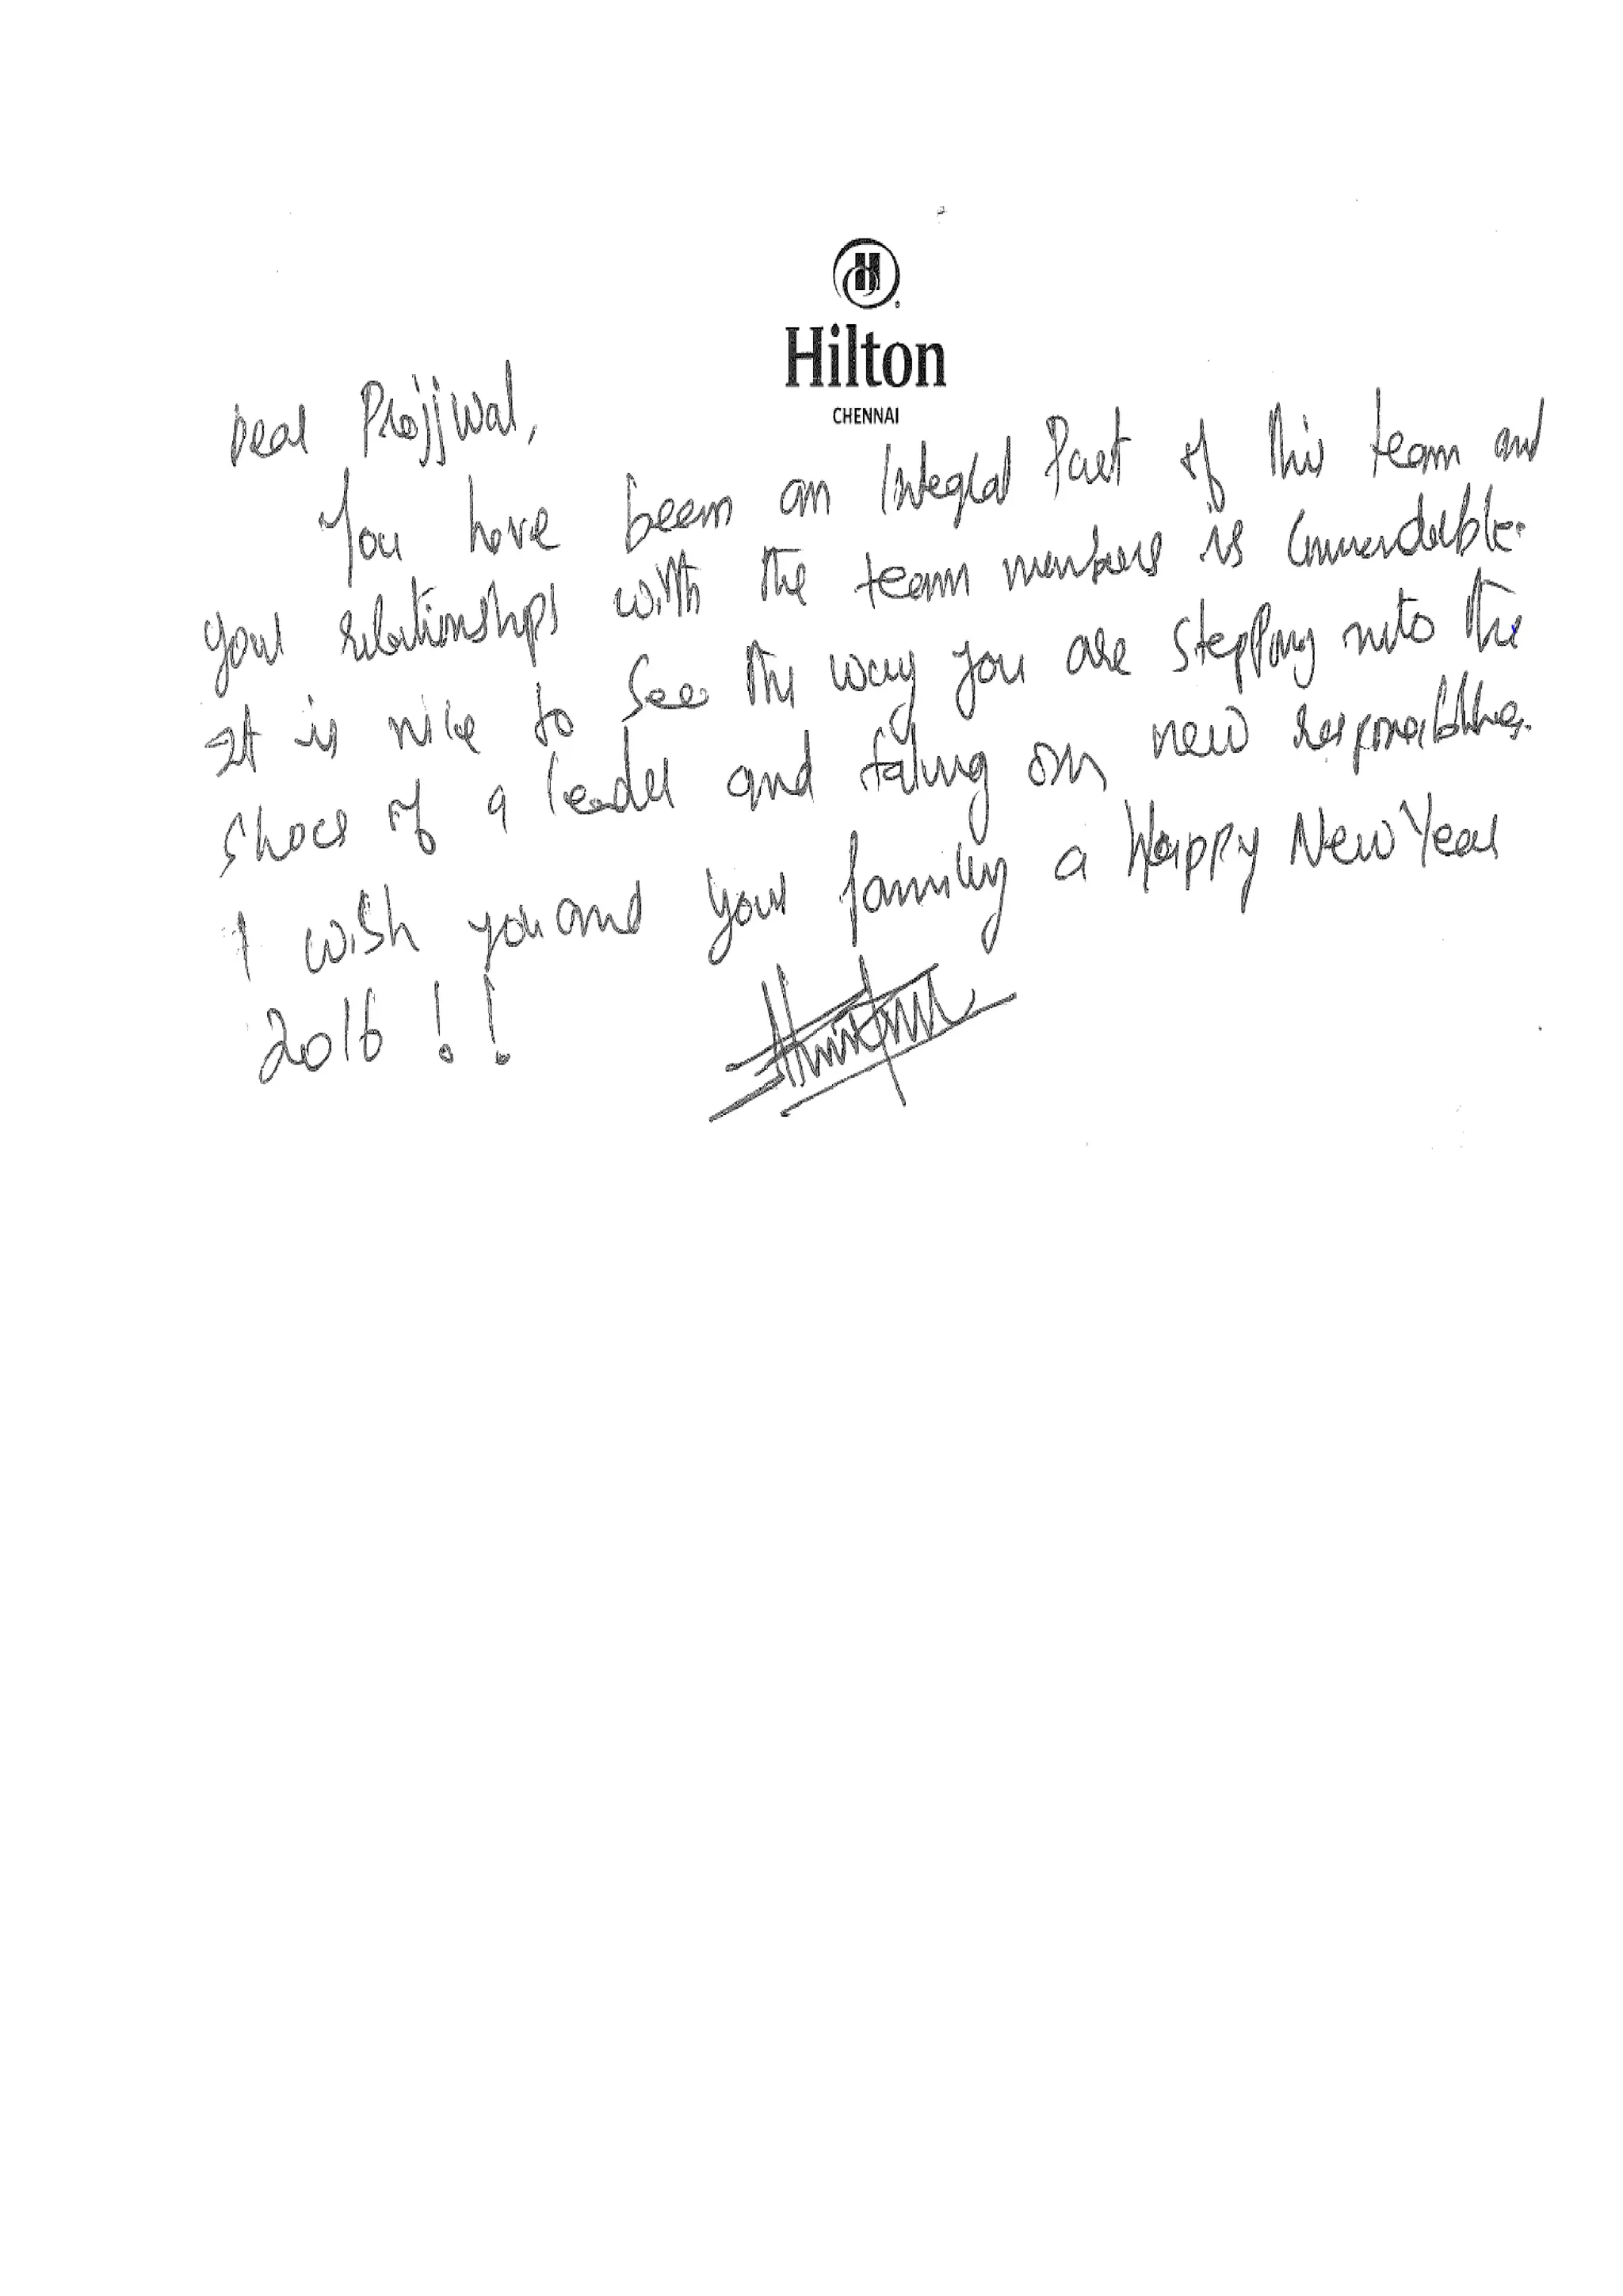 H
Hilton
CHENNAI
Dear Projjwal,
You have been an Integral Part of this team and
your relationships with the team members is commendable.
It is nice to see the way you are stepping into the
shoes of a leader and taking on new responsibilities.
I wish you and your family a Happy New Year
2016 ! !